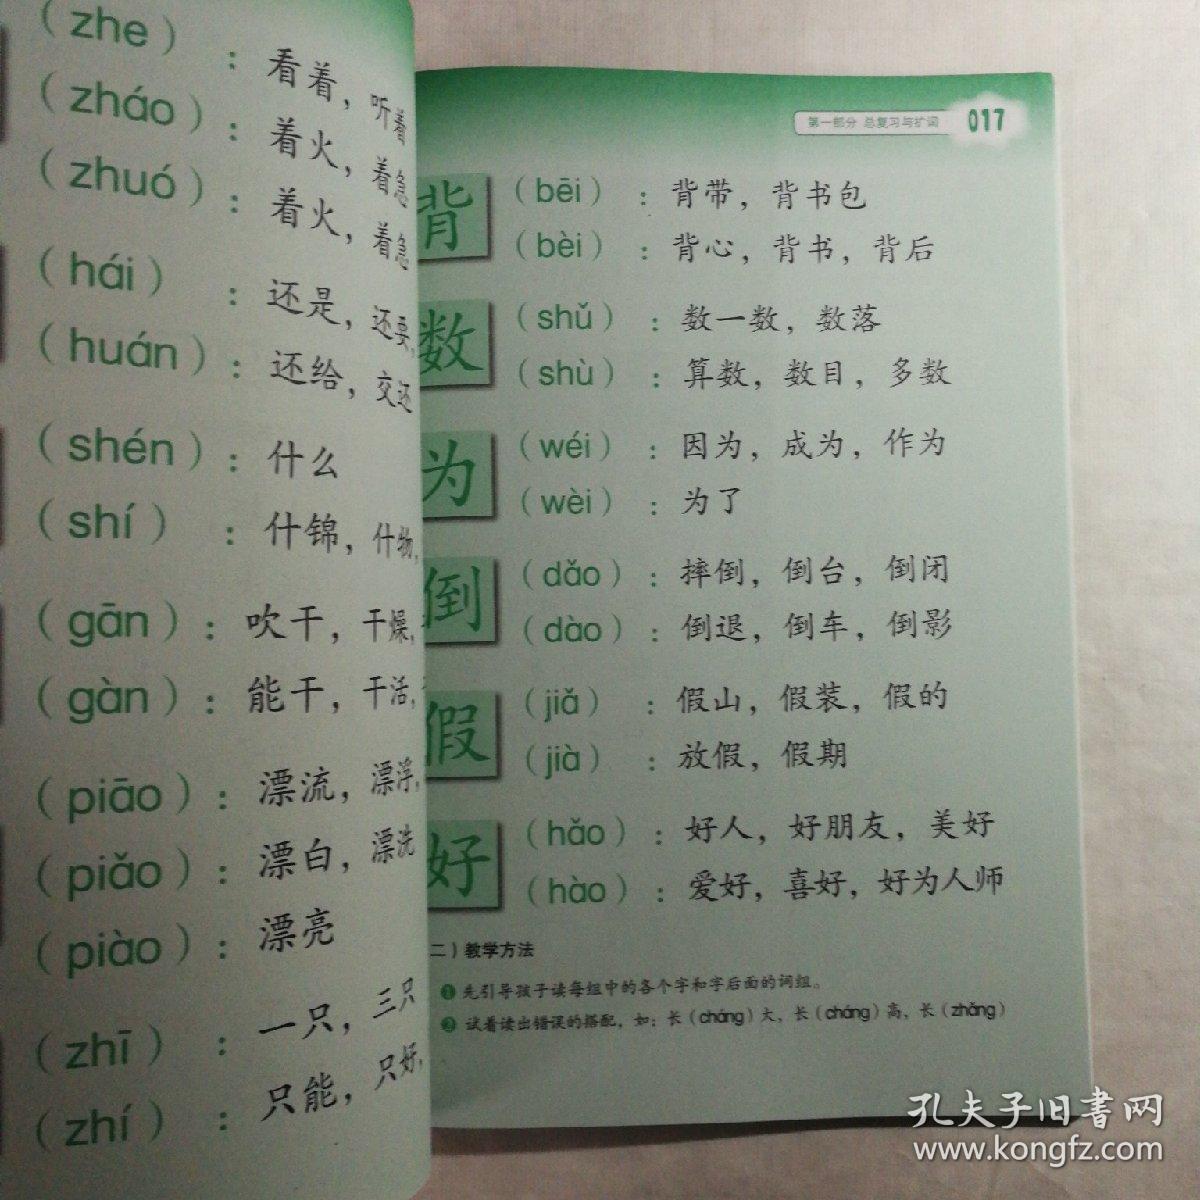 (zhe) : 看着，听着
(zháo) : 着火，着急
(zhuó) : 着火，着急
(hái) : 还是，还要，
(huán) : 还给，交还
(shén) : 什么
(shí) : 什锦，什物，
(gān) : 吹干，干燥，
(gàn) : 能干，干活，
(piāo) : 漂流，漂浮，
(piǎo) : 漂白，漂洗
(piào) : 漂亮
(zhī) : 一只，三只
(zhí) : 只能，只好，
第一部分 总复习与扩词 017
背 (bēi) : 背带，背书包
(bèi) : 背心，背书，背后
数 (shǔ) : 数一数，数落
(shù) : 算数，数目，多数
为 (wéi) : 因为，成为，作为
(wèi) : 为了
倒 (dǎo) : 摔倒，倒台，倒闭
(dào) : 倒退，倒车，倒影
假 (jiǎ) : 假山，假装，假的
(jià) : 放假，假期
好 (hǎo) : 好人，好朋友，美好
(hào) : 爱好，喜好，好为人师
二）教学方法
❶ 先引导孩子读每组中的各个字和字后面的词组。
❷ 试着读出错误的搭配，如：长（cháng）大、长（cháng）高、长（zhǎng）
孔夫子旧書网
www.kongfz.com